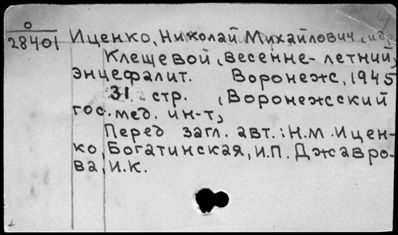 0
28401
Иценко, Николай Михайлович, и др.
Клещевой, весенне-летний,
энцефалит. Воронеж, 1945
31 стр. (Воронежский
гос. мед. ин-т)
Перед загл. авт.: Н.М. Ицен-
ко, Богатинская, И.П. Джавро-
ва, И.К.